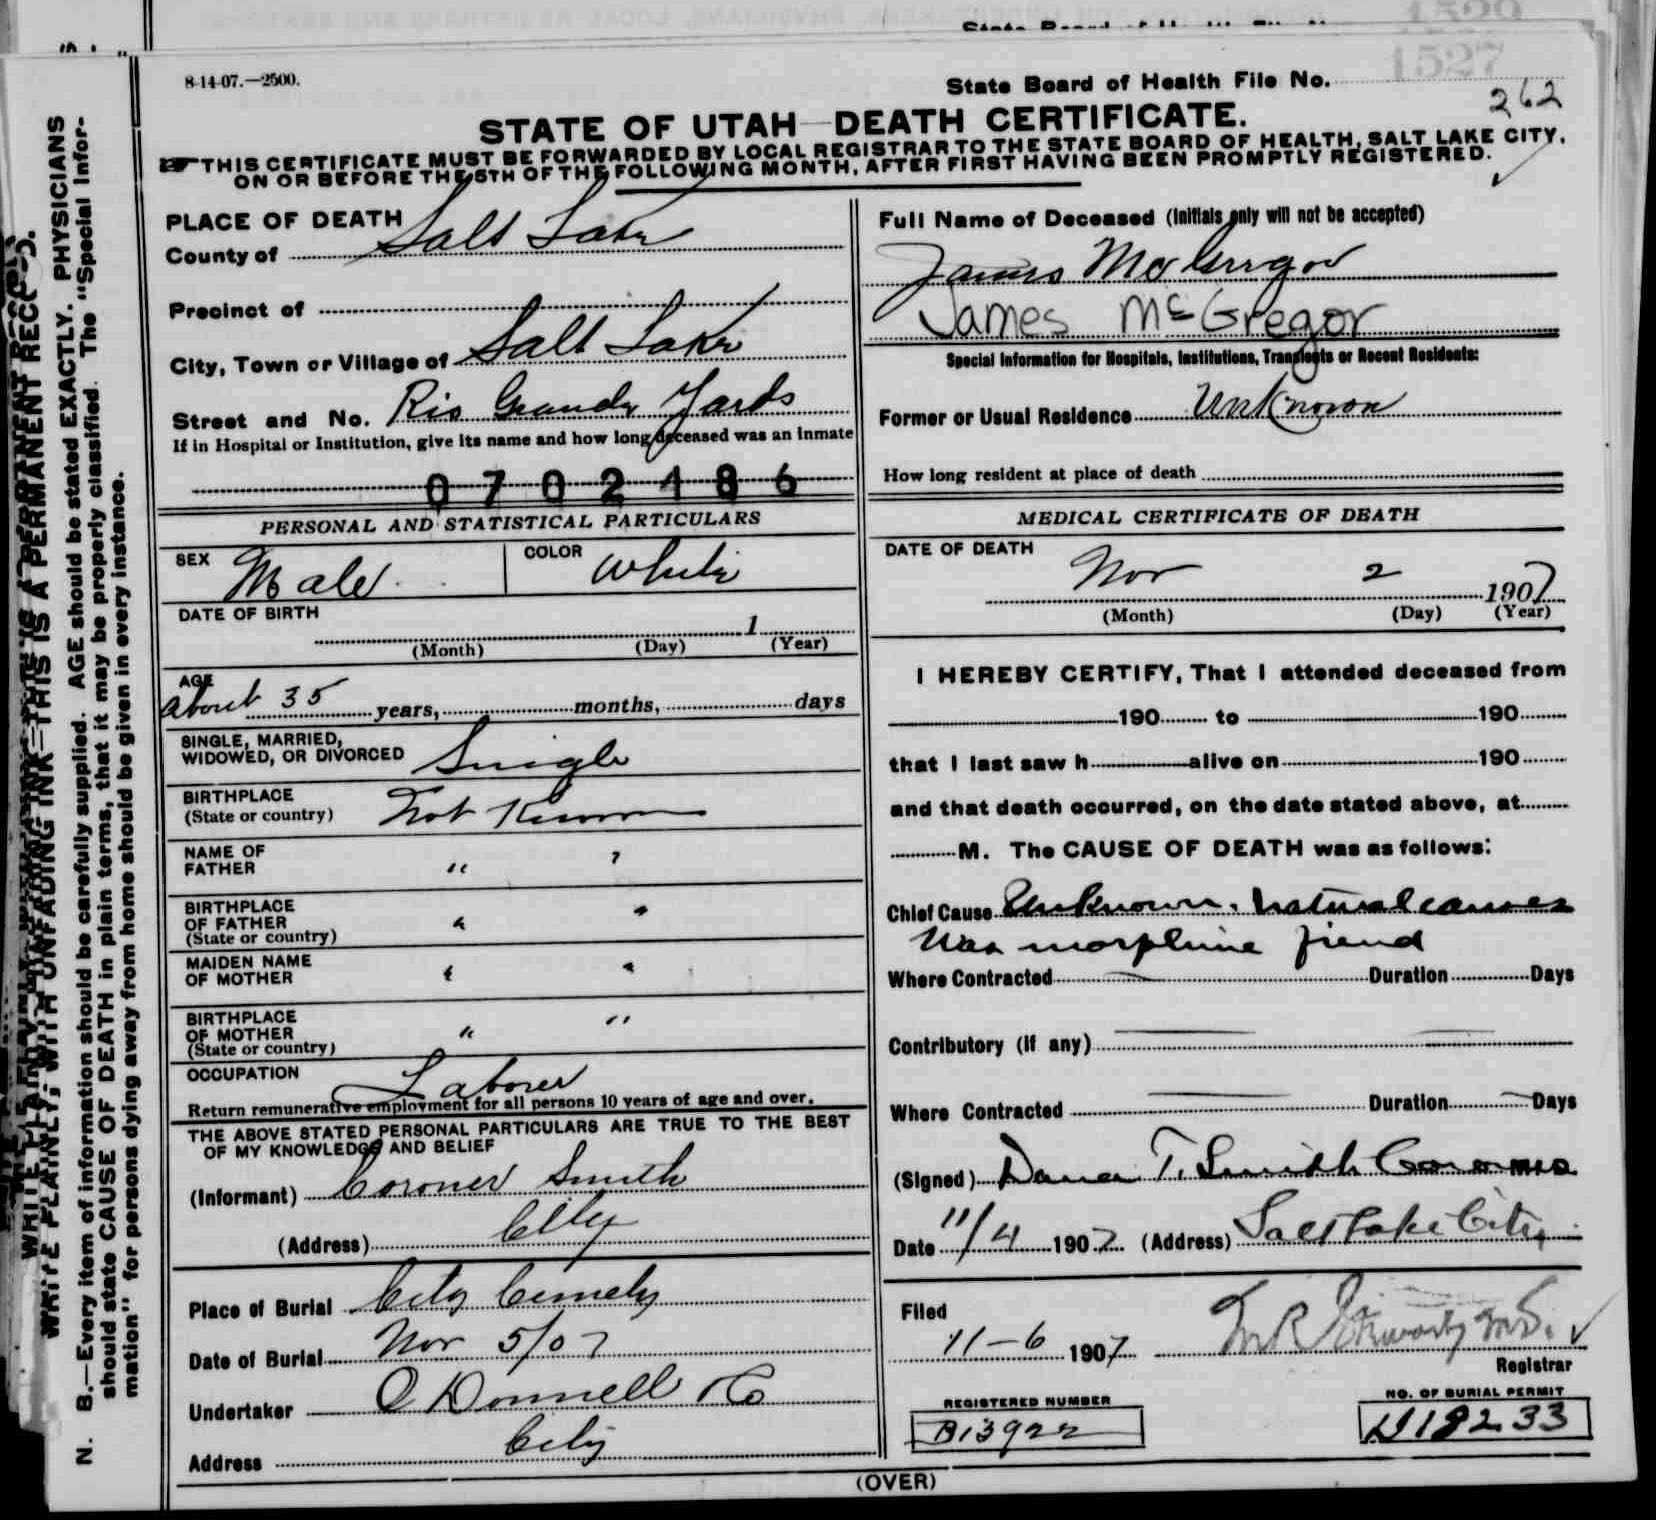 State Board of Health File No.
1527
262
8-14-07.—2500.
STATE OF UTAH—DEATH CERTIFICATE.
THIS CERTIFICATE MUST BE FORWARDED BY LOCAL REGISTRAR TO THE STATE BOARD OF HEALTH, SALT LAKE CITY,
ON OR BEFORE THE 5TH OF THE FOLLOWING MONTH, AFTER FIRST HAVING BEEN PROMPTLY REGISTERED.
PLACE OF DEATH
County of Salt Lake
Precinct of
City, Town or Village of Salt Lake
Street and No. Rio Grande Yards
If in Hospital or Institution, give its name and how long deceased was an inmate
0702186
PERSONAL AND STATISTICAL PARTICULARS
SEX Male COLOR White
DATE OF BIRTH
1
(Month) (Day) (Year)
AGE
about 35 years, months, days
SINGLE, MARRIED,
WIDOWED, OR DIVORCED Single
BIRTHPLACE
(State or country) Not Known
NAME OF
FATHER " "
BIRTHPLACE
OF FATHER " "
(State or country)
MAIDEN NAME
OF MOTHER " "
BIRTHPLACE
OF MOTHER " "
(State or country)
OCCUPATION Laborer
Return remunerative employment for all persons 10 years of age and over.
THE ABOVE STATED PERSONAL PARTICULARS ARE TRUE TO THE BEST
OF MY KNOWLEDGE AND BELIEF
(Informant) Coroner Smith
(Address) City
Place of Burial City Cemety
Date of Burial Nov 5/07
Undertaker O Donnell & Co
Address City
Full Name of Deceased (Initials only will not be accepted)
James McGregor
James McGregor
Special Information for Hospitals, Institutions, Transients or Recent Residents:
Former or Usual Residence Unknown
How long resident at place of death
MEDICAL CERTIFICATE OF DEATH
DATE OF DEATH
Nov 2 1907
(Month) (Day) (Year)
I HEREBY CERTIFY, That I attended deceased from
190 to 190
that I last saw h alive on 190
and that death occurred, on the date stated above, at
M. The CAUSE OF DEATH was as follows:
Chief Cause Unknown. Natural causes
Was morphine fiend
Where Contracted Duration Days
Contributory (if any)
Where Contracted Duration Days
(Signed) Dana T. Smith Coroner
Date 11/4 1907 (Address) Salt Lake City
Filed
11-6 1907
Registrar
REGISTERED NUMBER
B13922
NO. OF BURIAL PERMIT
D18233
(OVER)
N. B.—Every item of information should be carefully supplied. AGE should be stated EXACTLY. PHYSICIANS
should state CAUSE OF DEATH in plain terms, that it may be properly classified. The "Special Infor-
mation" for persons dying away from home should be given in every instance.
WRITE PLAINLY, WITH UNFADING INK—THIS IS A PERMANENT RECORD.